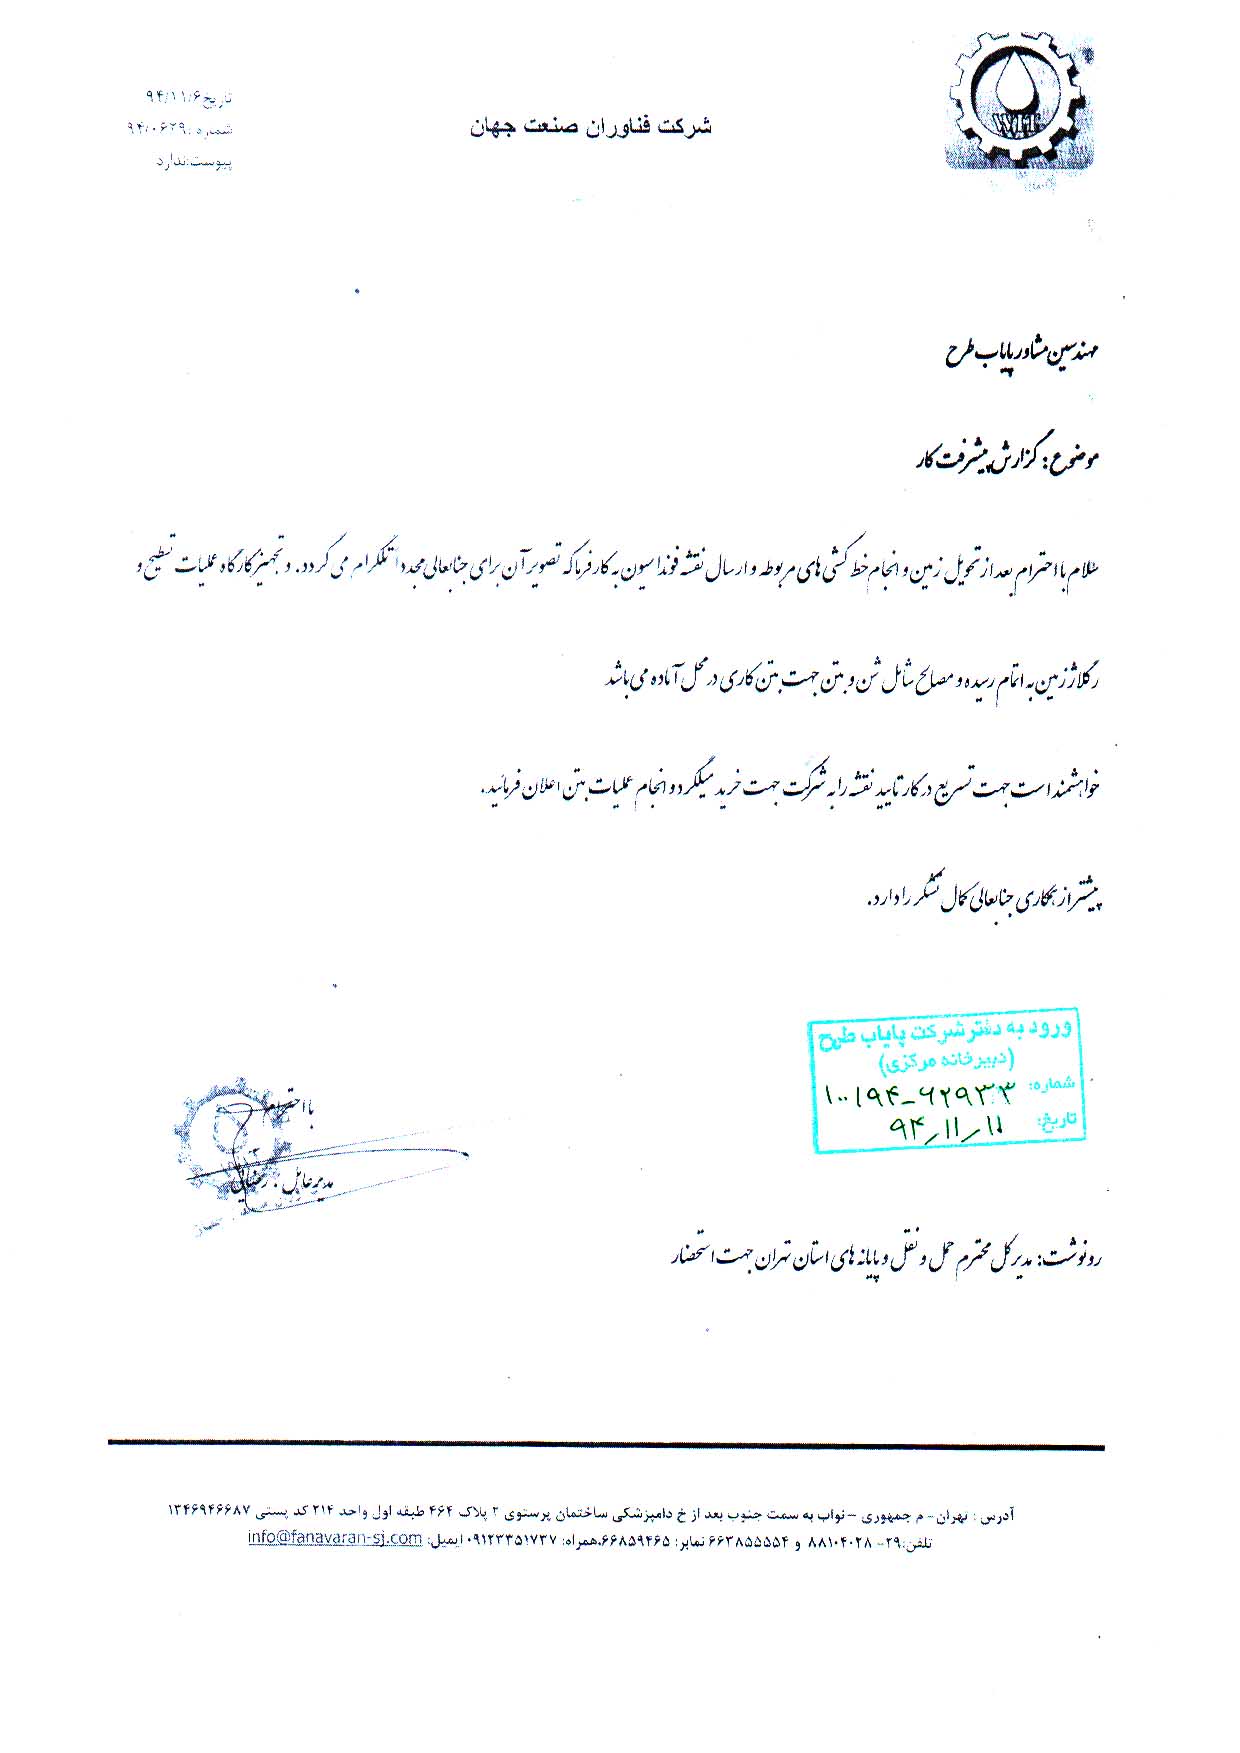 شرکت فناوران صنعت جهان
تاریخ:۹۴/۱۱/۶
شماره:۹۴/۰۶۲۹
پیوست:ندارد
WIT
مهندسین مشاور پایاب طرح
موضوع: گزارش پیشرفت کار
سلام با احترام بعد از تحویل زمین و انجام خط کشی های مربوطه و ارسال نقشه فونداسیون به کارفرما که تصویر آن برای جنابعالی مجددا تلگرام می گردد. و تجهیز کارگاه عملیات تسطیح و
رگلاژ زمین به اتمام رسیده و مصالح شامل شن و بتن جهت بتن کاری در محل آماده می باشد
خواهشمند است جهت تسریع در کار تایید نقشه را به شرکت جهت خرید میلگرد و انجام عملیات بتن اعلان فرمائید.
پیشتر از همکاری جنابعالی کمال تشکر را دارد.
ورود به دفتر شرکت پایاب طرح
(دبیرخانه مرکزی)
شماره: ۱۰۰۱۹۴-۶۲۹۳۳
تاریخ: ۹۴/۱۱/۱۱
با احترام
مدیرعامل : رضایی
رونوشت: مدیر کل محترم حمل و نقل و پایانه های استان تهران جهت استحضار
آدرس : تهران- م جمهوری -نواب به سمت جنوب بعد از خ دامپزشکی ساختمان پرستوی ۲ پلاک ۴۶۴ طبقه اول واحد ۲۱۴ کد پستی ۱۳۴۶۹۴۶۶۸۷
تلفن:۲۹- ۸۸۱۰۴۰۲۸ و ۶۶۳۸۵۵۵۵۴ نمابر: ۶۶۸۵۹۴۶۵،همراه: ۰۹۱۲۳۳۵۱۷۳۷ ایمیل: info@fanavaran-sj.com